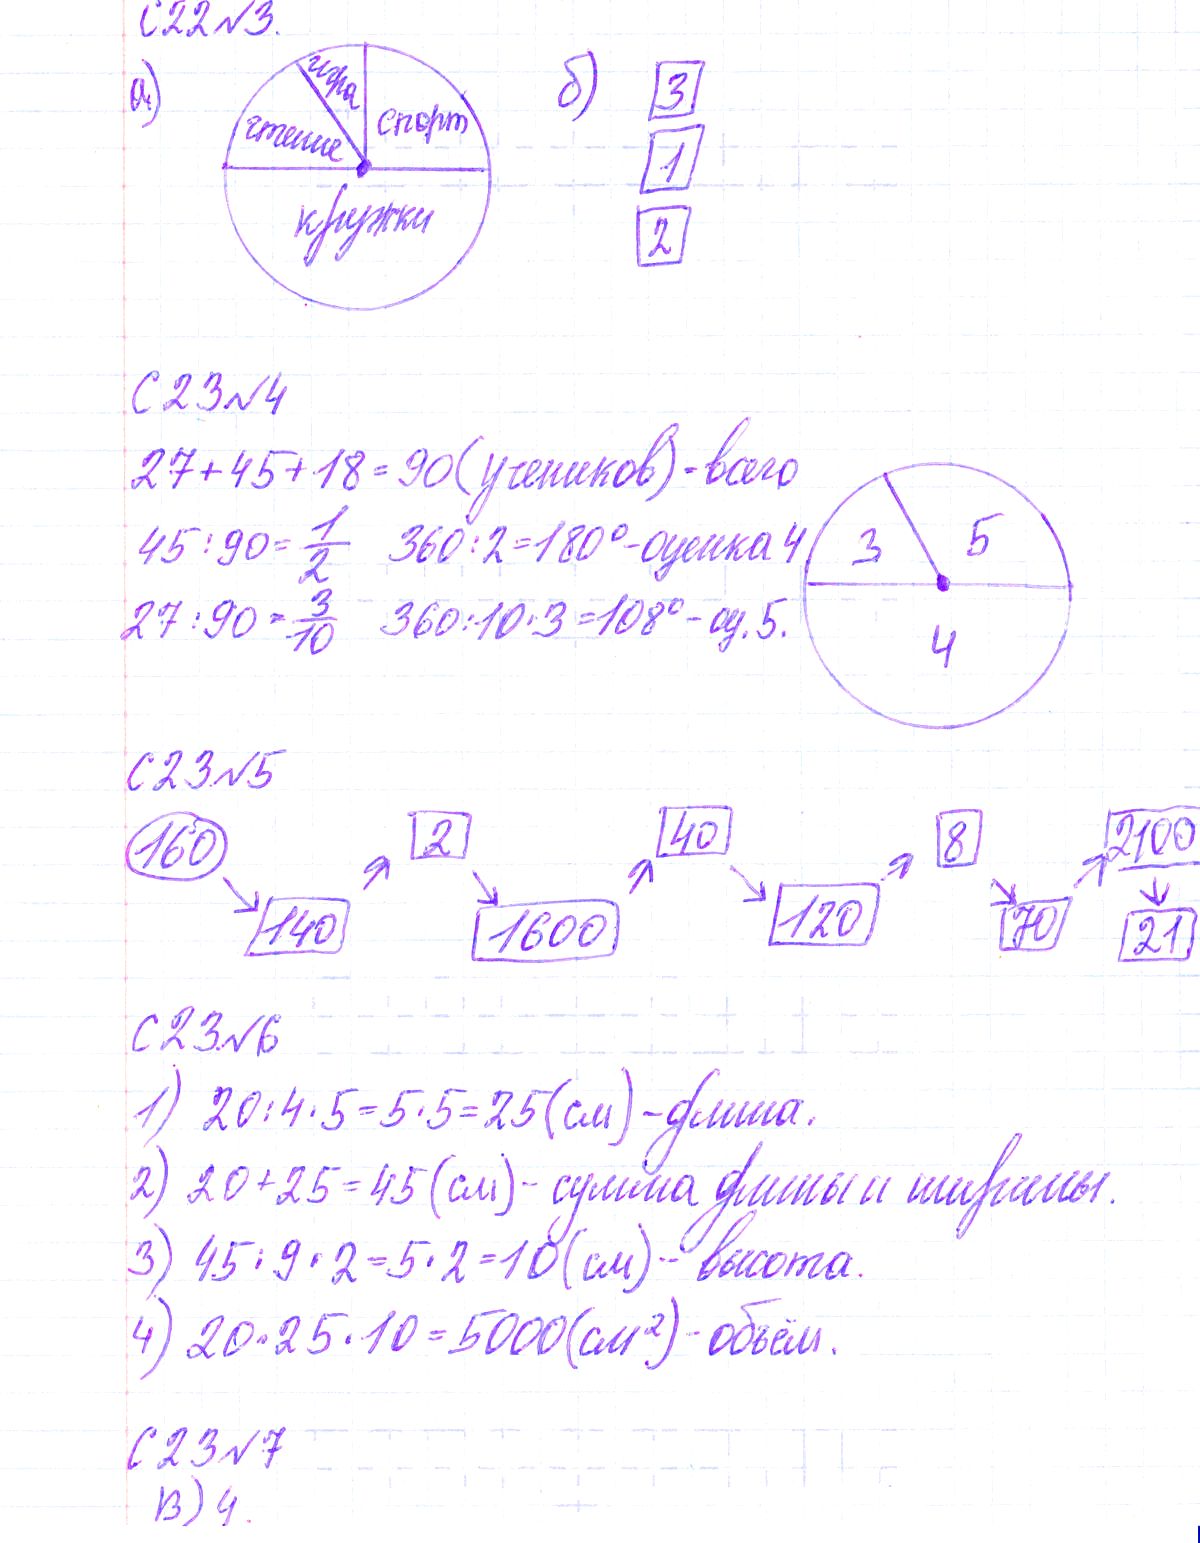 С22№3.
а)
игра
чтение
спорт
кружки
б)
3
1
2
С23№4
27+45+18=90(учеников)-всего
45:90=1/2 360:2=180°-оценка 4
27:90=3/10 360:10·3=108°-оц.5.
3 5
4
С23№5
160 2 40 8 2100
140 1600 120 70 21
С23№6
1) 20:4·5=5·5=25(см)-длина.
2) 20+25=45(см)-сумма длины и ширины.
3) 45:9·2=5·2=10(см)-высота.
4) 20·25·10=5000(см²)-объём.
С23№7
В) 4.